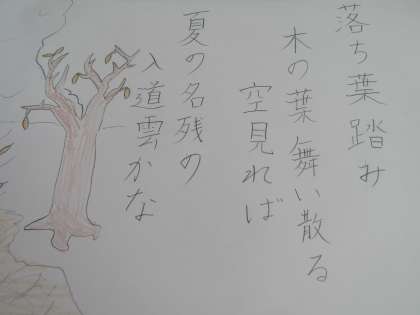 落ち葉踏み
木の葉舞い散る
空見れば
夏の名残の
入道雲かな